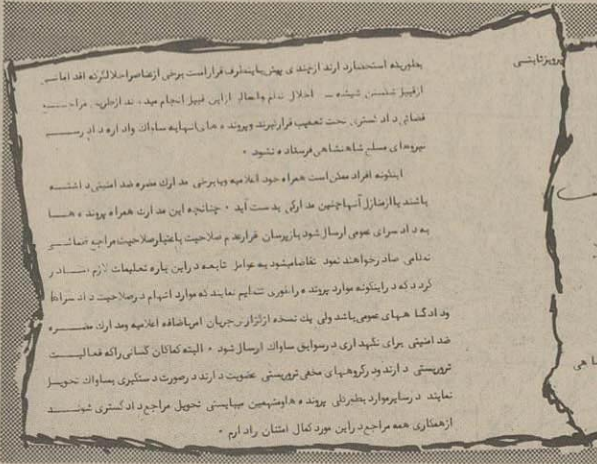 پرویز ثابتی
بطوریکه استحضار دارند از چندی پیش باینطرف قرار است برخی از عناصر اخلالگر که اقداماتی
از قبیل شکستن شیشه - اخلال نظم وامثالهم از این قبیل انجام میدهند از طریق مراجع
قضائی دادگستری تحت تعقیب قرار گیرند و پرونده های آنها به ساواک و اداره دادرسی
نیروهای مسلح شاهنشاهی فرستاده نشود .
اینگونه افراد ممکن است همراه خود اعلامیه ویا برخی مدارک مضره ضد امنیتی داشته
باشند یا از منازل آنها چنین مدارکی بدست آید . چنانچه این مدارک همراه پرونده هــا
به دادسرای عمومی ارسال شود بازپرسان قرار عدم صلاحیت باعتبار صلاحیت مراجع قضائی
نظامی صادر خواهند نمود تقاضا میشود به عوامل تابعه در این باره تعلیمات لازم صــادر
گردد که در اینگونه موارد پرونده را طوری تنظیم نمایند که موارد اتهام در صلاحیت دادسراها
ودادگاههای عمومی باشد ولی یک نسخه از گزارش جریان امر باضافه اعلامیه ومدارک مضــره
ضد امنیتی برای نگهداری در سوابق ساواک ارسال شود . البته کماکان کسانی را که فعالیــت
تروریستی دارند ودر گروههای مخفی تروریستی عضویت دارند در صورت دستگیری بساواک تحویــل
نمایند در سایر موارد بطور کلی پرونده ها ومتهمین میبایستی تحویل مراجع دادگستری شونــد
از همکاری همه مراجع در این مورد کمال امتنان را دارم .